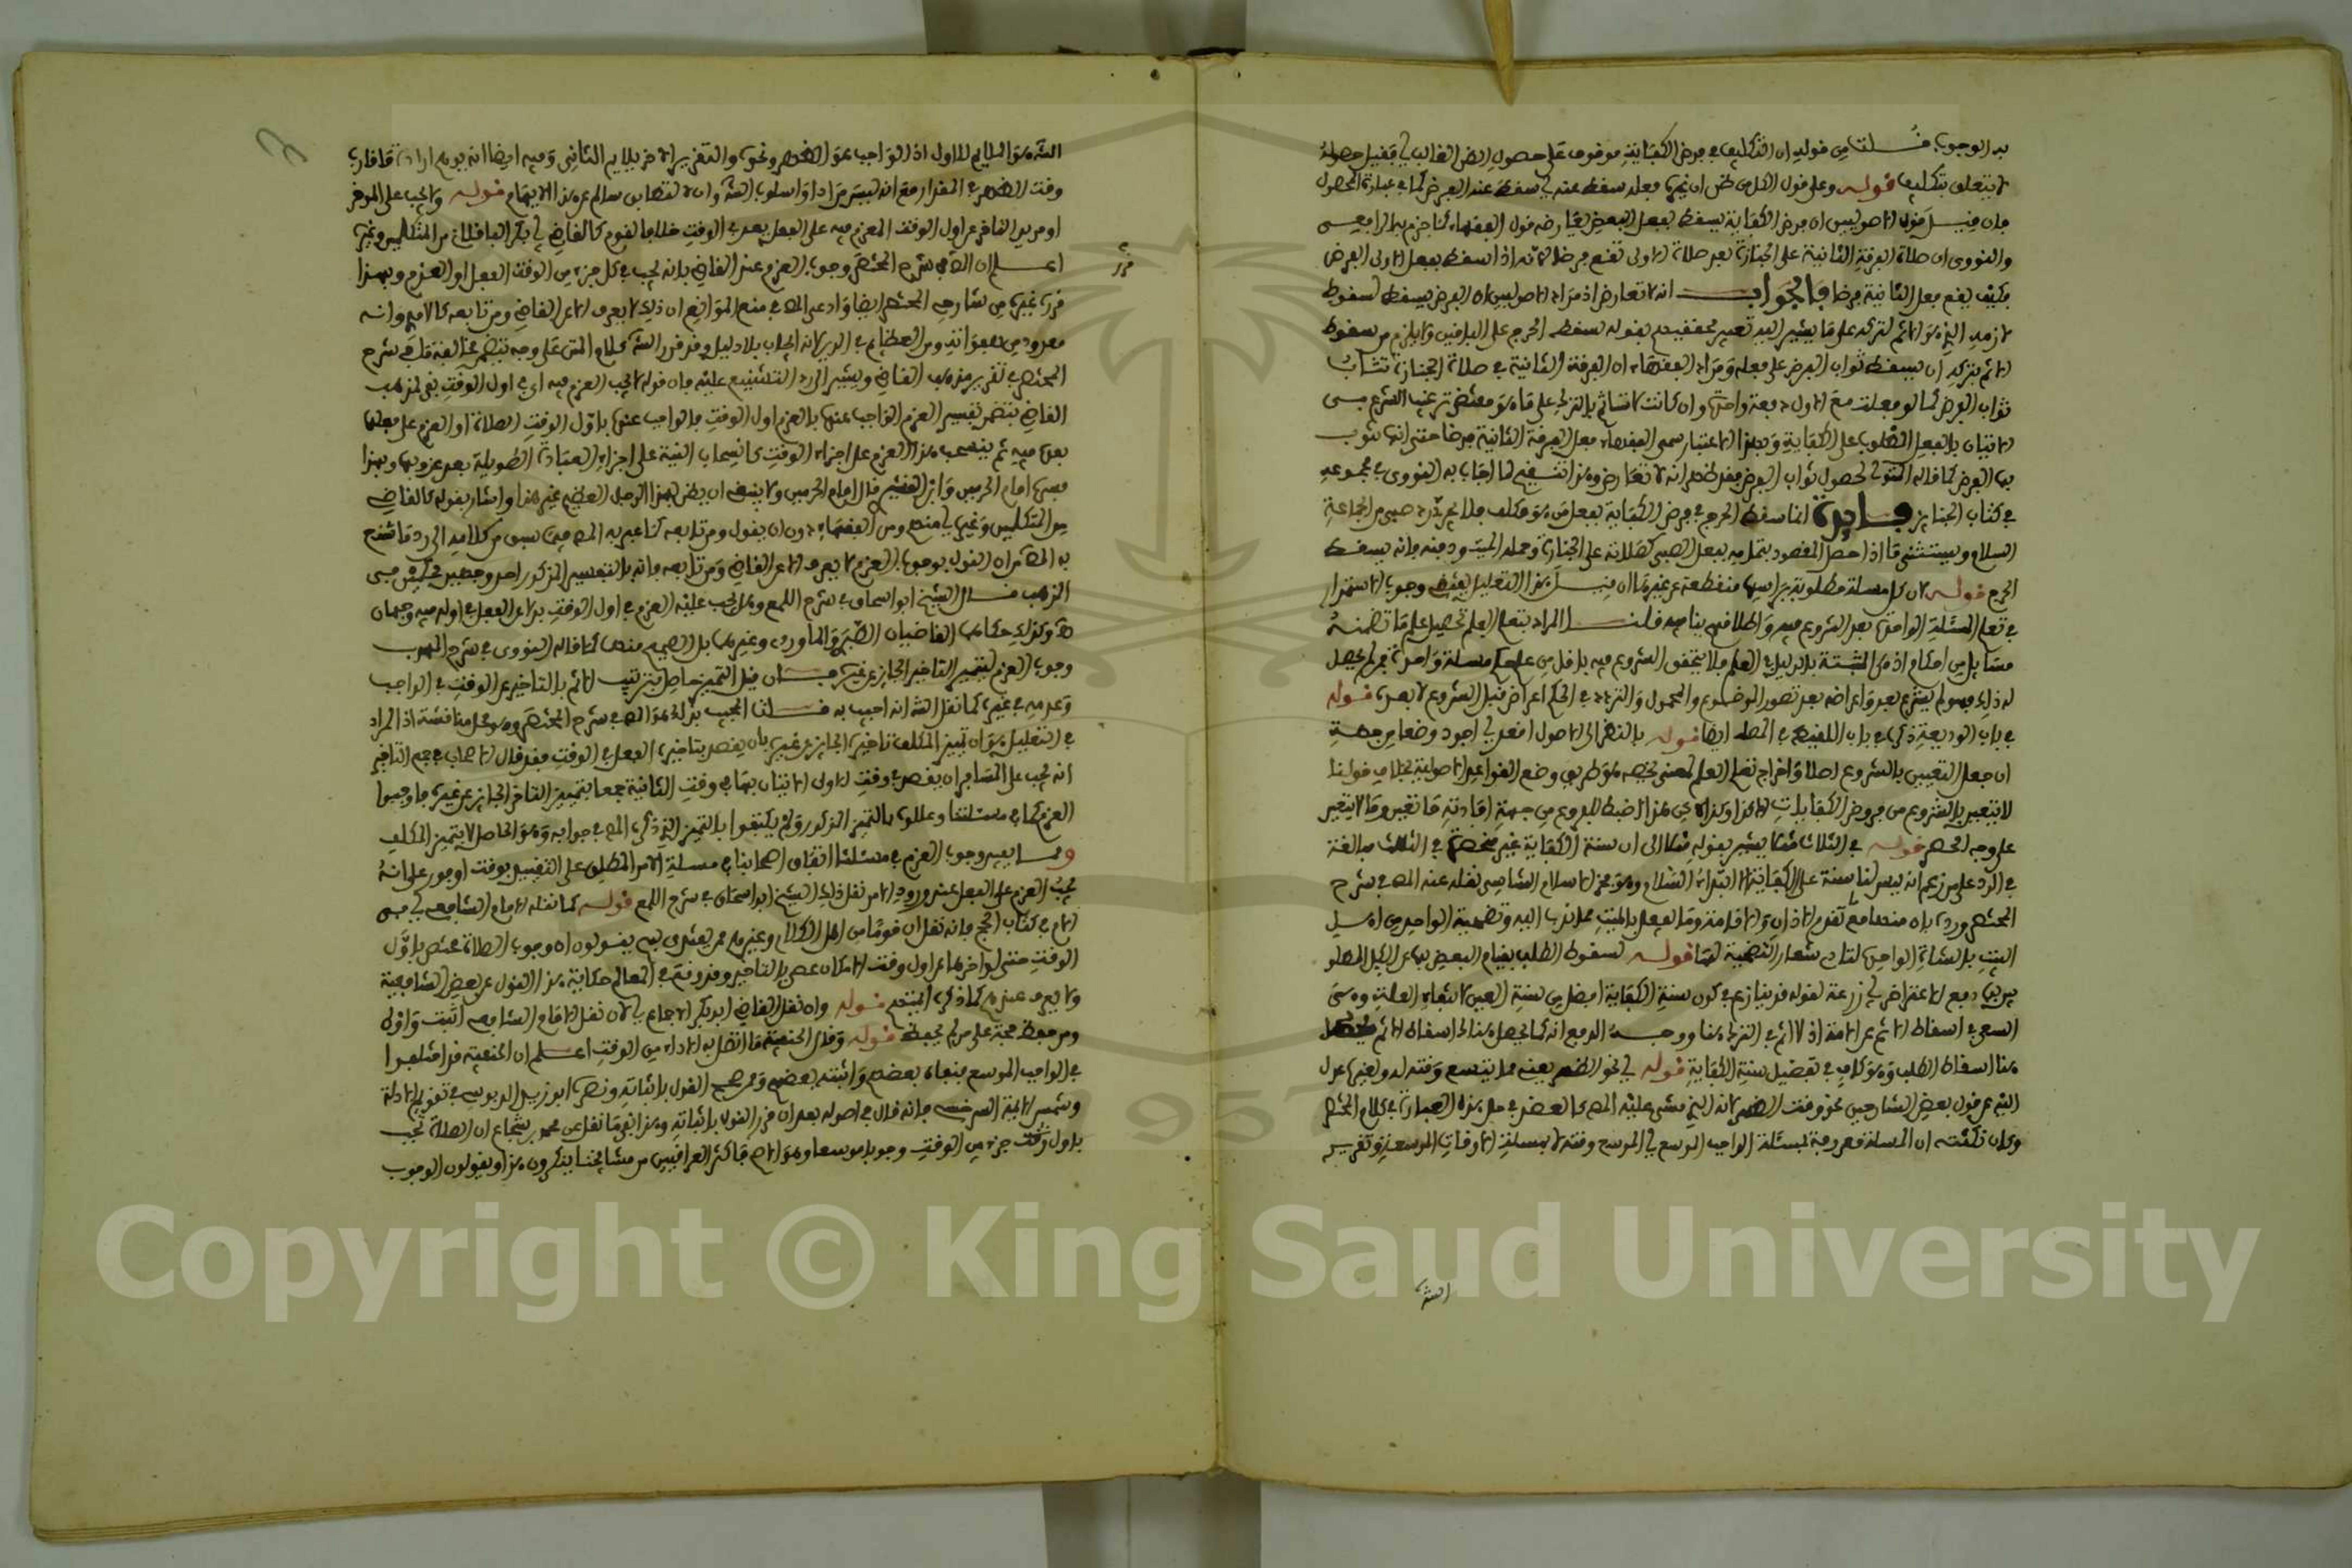 به الوجوب قلت من قوله ان التكليف في فرض الكفاية موقوف على حصول الظن الغالب اي فقبل حصوله
لا يتعلق تكليف قوله وعلى قول الكل من ظن ان غيره فعله سقط عنه اي سقط عنه الفرض كما في عبارة المحصول
فان قيل قول الاصوليين ان فرض الكفاية يسقط بفعل البعض يعارضه قول الفقهاء كما جزم به الرافعي
والنووي ان صلاة الفرقة الثانية على الجنازة بعد صلاة الاولى تقع فرضا لانه اذا سقط بفعل الاولى الفرض
فكيف يقع فعل الثانية فرضا فالجواب انه لا تعارض اذ مراد الاصوليين ان الفرض يسقط لسقوط
لازمه الذي هو الاثم لتركه على ما يشير اليه تعبير محققيهم بقوله سقط الحرج على الباقين ولا يلزم من سقوط
الاثم بتركه ان يسقط ثواب الفرض على فعله ومراد الفقهاء ان الفرقة الثانية في صلاة الجنازة تثاب
ثواب الفرض كما لو فعلت مع الاولى دفعة واحدة وان كانت لا تاثم بالترك على ما هو مقتضى ترغيب الشرع في
الاتيان بالفعل المطلوب على الكفاية وبهذا الاعتبار سمى الفقهاء فعل الفرقة الثانية فرضا حتى انه ينوب
بها الفرض كما قاله المتولي لحصول ثواب الفرض فقد ظهر انه لا تعارض وهذا تنقيح لما اجاب به النووي في مجموعه
في كتاب الجنائز فايدة انما سقط الحرج في فرض الكفاية بفعل من هو مكلف فلا يجزي رد صبي من الجماعة
السلام ويستثنى ما اذا حصل المقصود بتمامه بفعل الصبي كصلاته على الجنازة وحمله الميت ودفنه فانه يسقط
الحرج قوله لان كل مسلة مطلوبة براسها منقطعة عن غيرها ان قيل هذا التعليل يقتضي وجوب الاستمرار
في تعلم المسئلة الواحدة بعد الشروع فيه واطلاقهم ينافيه قلت المراد بتعلم العلم تحصيل علم ما تضمنه
مسايل من احكام
له ذلك فهو لم يشرع بعد واعراضه بعد تصور الموضوع والمحمول والتردد في الحكم اعراض قبل الشروع لا بعده قوله
في باب الوديعة ذكره في باب اللقيط في المطلب ايضا قوله بالنظر الى الاصول اقعد اي اجود وضعا من جهة
ان جعل التعيين بالشروع اصلا واخراج تعلم العلم لمعنى يخصه هو طريق وضع القواعد الاصولية بخلاف قولنا
لا يتعين بالشروع من فروض الكفايات الا كذا وكذا
على وجه الحصر قوله في الثلاث
في الرد على من زعم انه ليس لنا سنة على الكفاية الا ابتداء السلام وهو فخر الاسلام الشاشي نقله عنه المص في شرح
المختصر ورده بان منها ما تقدم الاذان والاقامة وما يفعل بالميت مما ندب اليه وتضحية الواحد من اهل
البيت بالشاة الواحدة لتادي شعار التضحية بها قوله لسقوط الطلب بقيام البعض بها عن الكل المطلوبين
بها دفع لاعتراض اي زرعة لقوله قد ينازع في كون سنة الكفاية افضل من سنة العين لانتفاء العلة وهي
السعي في اسقاط الاثم عن الامة اذ لا اثم في الترك هنا ووجه الدفع انه كما يحصل هناك اسقاط الاثم يحصل
هنا اسقاط الطلب
الشه عن قول بعض الشارحين نحو وقت الظهر لانه الذي مشى عليه المص كالعضد في حل هذه العبارة في كلام المختصر
وكان نكتته ان المسلة معروفة بمسئلة الواجب الموسع اي الموسع وقته لا بمسئلة الاوقات الموسعة وتقرير
الشه
الشه هو الملايم للاول اذ الواجب هو الظهر ونحوه والتقرير الاخر يلايم الثاني وفيه ايضا انه يوهم ارادة ما قارب
وقت الظهر في المقدار مع انه ليس مرادا واسلوب الشه
او مريد التاخير عن اول الوقت العزم فيه على الفعل بعد في الوقت خلافا لقوم كالقاضي ابي بكر الباقلاني من المتكلمين وغيره
اعلم ان المص في شرح المختصر وجوب العزم عند القاضي بانه يجب في كل جزء من الوقت الفعل او العزم وبهذا
قرره غيره من شارحي المختصر ايضا وادعى المص في منع الموانع ان ذلك لا يعرف الا عن القاضي ومن تابعه كالامدي وانه
معدود من هفواته ومن العظائم في الدين لانه ايجاب بلا دليل وقد قرر الشه كلام المتن على وجه يتضمن مخالفة ما في شرح
المختصر في تقرير مذهب القاضي ويشير الى رد التشنيع عليه فان قوله لا يجب العزم فيه اي في اول الوقت نفي لمذهب
القاضي يتضمن تفسير العزم الواجب عنده بالعزم اول الوقت فالواجب عنده باول الوقت الصلاة او العزم على فعلها
بعده فيه ثم ينسحب هذا العزم على اجزاء الوقت كانسحاب النية على اجزاء العبادة الطويلة بعد عزوبها وبهذا
فسره امام الحرمين وابن القشيري قال امام الحرمين ولا ينبغي ان يظن بهذا الرجل العظيم غير هذا واشار بقوله كالقاضي
من المتكلمين وغيره اي منهم ومن الفقهاء دون ان يقول ومن تابعه كما عبر به المص فيما سبق من كلامه الى رد ما شنع
به المص من ان القول بوجوب العزم لا يعرف الا عن القاضي ومن تابعه فانه بالتفسير المذكور احد وجهين محكيين في
المذهب قال الشيخ ابو اسحاق في شرح اللمع وهل يجب عليه العزم في اول الوقت بدلا عن الفعل في اوله فيه وجهان
وكذلك حكاهما القاضيان الطبري والماوردي وغيرهما بل الصحيح منهما كما قاله النووي في شرح المهذب
وجوب العزم لتمييز التاخير الجايز عن غيره فان قيل التمييز حاصل بترتيب الاثم بالتاخير عن الوقت في الواجب
وعدمه في غيره كما نقل الشه انه اجيب به قلت المجيب بذلك هو المص في شرح المختصر وهو محل مناقشة اذ المراد
في التعليل هو ان تمييز المكلف تاخيره الجايز عن غيره بان يقصد بتاخيره الفعل في الوقت فقد قال الاصحاب في جمع التاخير
انه يجب على المسافر ان يقصد في وقت الاولى الاتيان بها في وقت الثانية جمعا بتمييز التاخير الجايز عن غيره فاوجبوا
العزم كما في مسئلتنا وعللوه بالتمييز المذكور ولم يكتفوا بالتمييز الذي ذكره المص في جوابه وهو الحاصل لا بتمييز المكلف
ومما يفيد وجوب العزم في مسئلتنا اتفاق اصحابنا في مسلة الامر المطلق عن التقييد بوقت او فور على انه
يجب العزم على الفعل عند ورود الامر نقل ذلك الشيخ ابو اسحاق في شرح اللمع قوله كما نقله الامام الشافعي اي في
الام في كتاب الحج فانه نقل ان قوما من اهل الكلام وغيرهم ممن يفتي
الوقت حتى لو اخرها عن اول وقت الامكان عصى بالتاخير وقد وقع في المعالم حكاية هذا القول عن بعض الشافعية
ولا يعرف عندهم كما ذكره المتقدم قوله وان نقل القاضي ابو بكر الاجماع اي لان نقل الامام الشافعي اثبت واولى
ومن حفظ حجة على من لم يحفظ قوله وقال الحنفية ما اتصل به الاداء من الوقت اعلم ان الحنفية قد اختلفوا
في الواجب الموسع فنفاه بعضهم واثبته بعضهم وممن صحح القول باثباته ونصره ابو زيد الدبوسي في تقويم الادلة
وشمس الايمة السرخسي فانه قال في اصوله بعد ان قرر القول باثباته وهذا نقل عن محمد بن شجاع ان الصلاة تجب
باول وقت جزء من الوقت وجوبا موسعا وهو الاصح واكثر العراقيين من مشايخنا ينكرون هذا ويقولون الوجوب
قرر